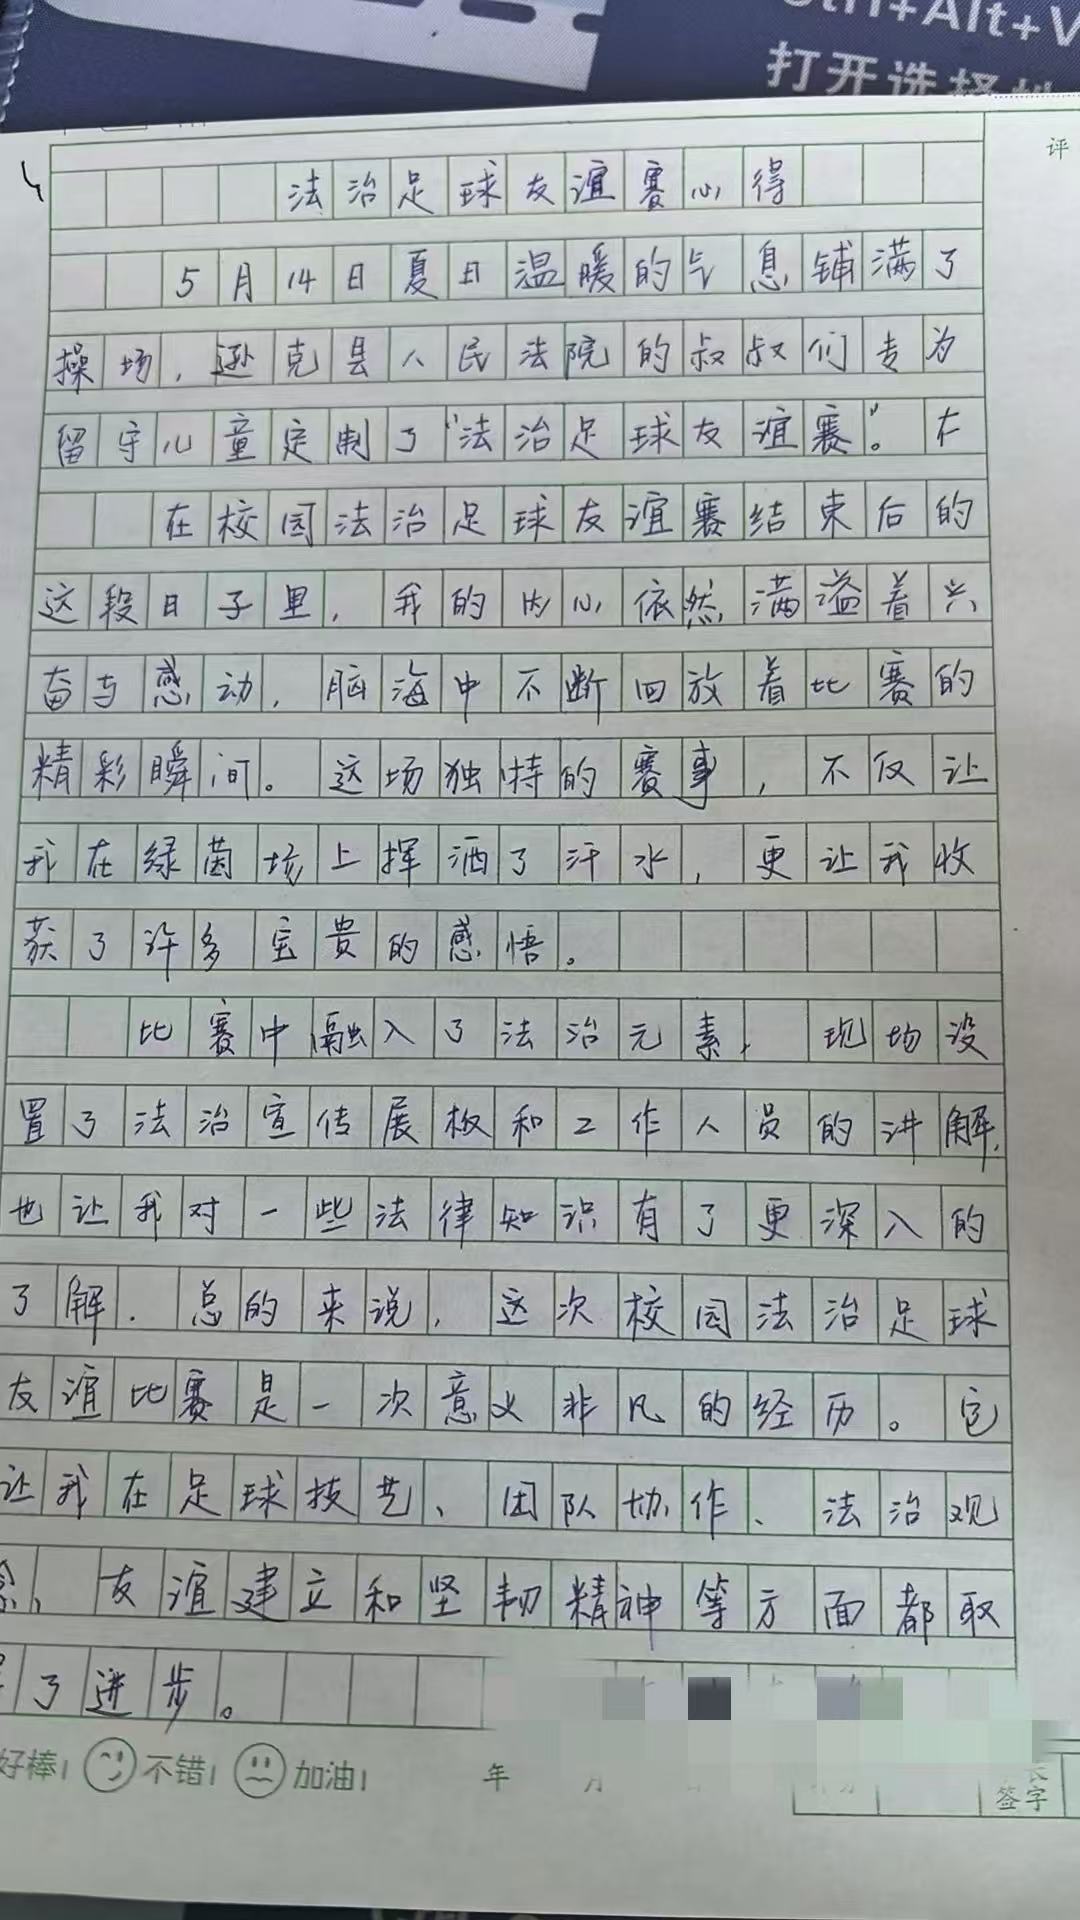 Ctrl+Alt+V
打开选择
评
法治足球友谊赛心得
5月14日夏日温暖的气息铺满了
操场，逊克县人民法院的叔叔们专为
留守儿童定制了“法治足球友谊赛”。在
在校园法治足球友谊赛结束后的
这段日子里，我的内心依然满溢着兴
奋与感动，脑海中不断回放着比赛的
精彩瞬间。这场独特的赛事，不仅让
我在绿茵场上挥洒了汗水，更让我收
获了许多宝贵的感悟。
比赛中融入了法治元素，现场设
置了法治宣传展板和工作人员的讲解，
也让我对一些法律知识有了更深入的
了解．总的来说，这次校园法治足球
友谊比赛是一次意义非凡的经历。它
让我在足球技艺、团队协作、法治观
念、友谊建立和坚韧精神等方面都取
得了进步。
好棒! 不错! 加油! 年 月
签字